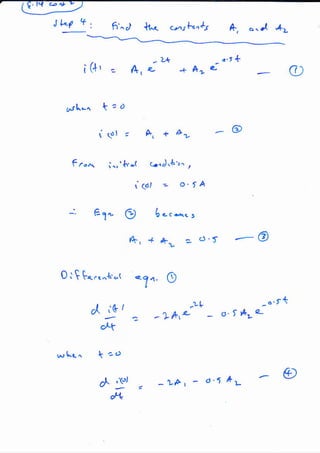 8.14 cont 2
Step 4 : Find the constants A₁ and A₂
i(t) = A₁ e^-2t + A₂ e^-0.5t — ①
when t = 0
i(0) = A₁ + A₂ — ②
From initial condition,
i(0) = 0.5 A
∴ Eqn ② becomes
A₁ + A₂ = 0.5 — ③
Differential eqn. ①
d i(t) / dt = -2A₁e^-2t - 0.5 A₂ e^-0.5t
when t = 0
d i(0) / dt = -2A₁ - 0.5 A₂ — ④